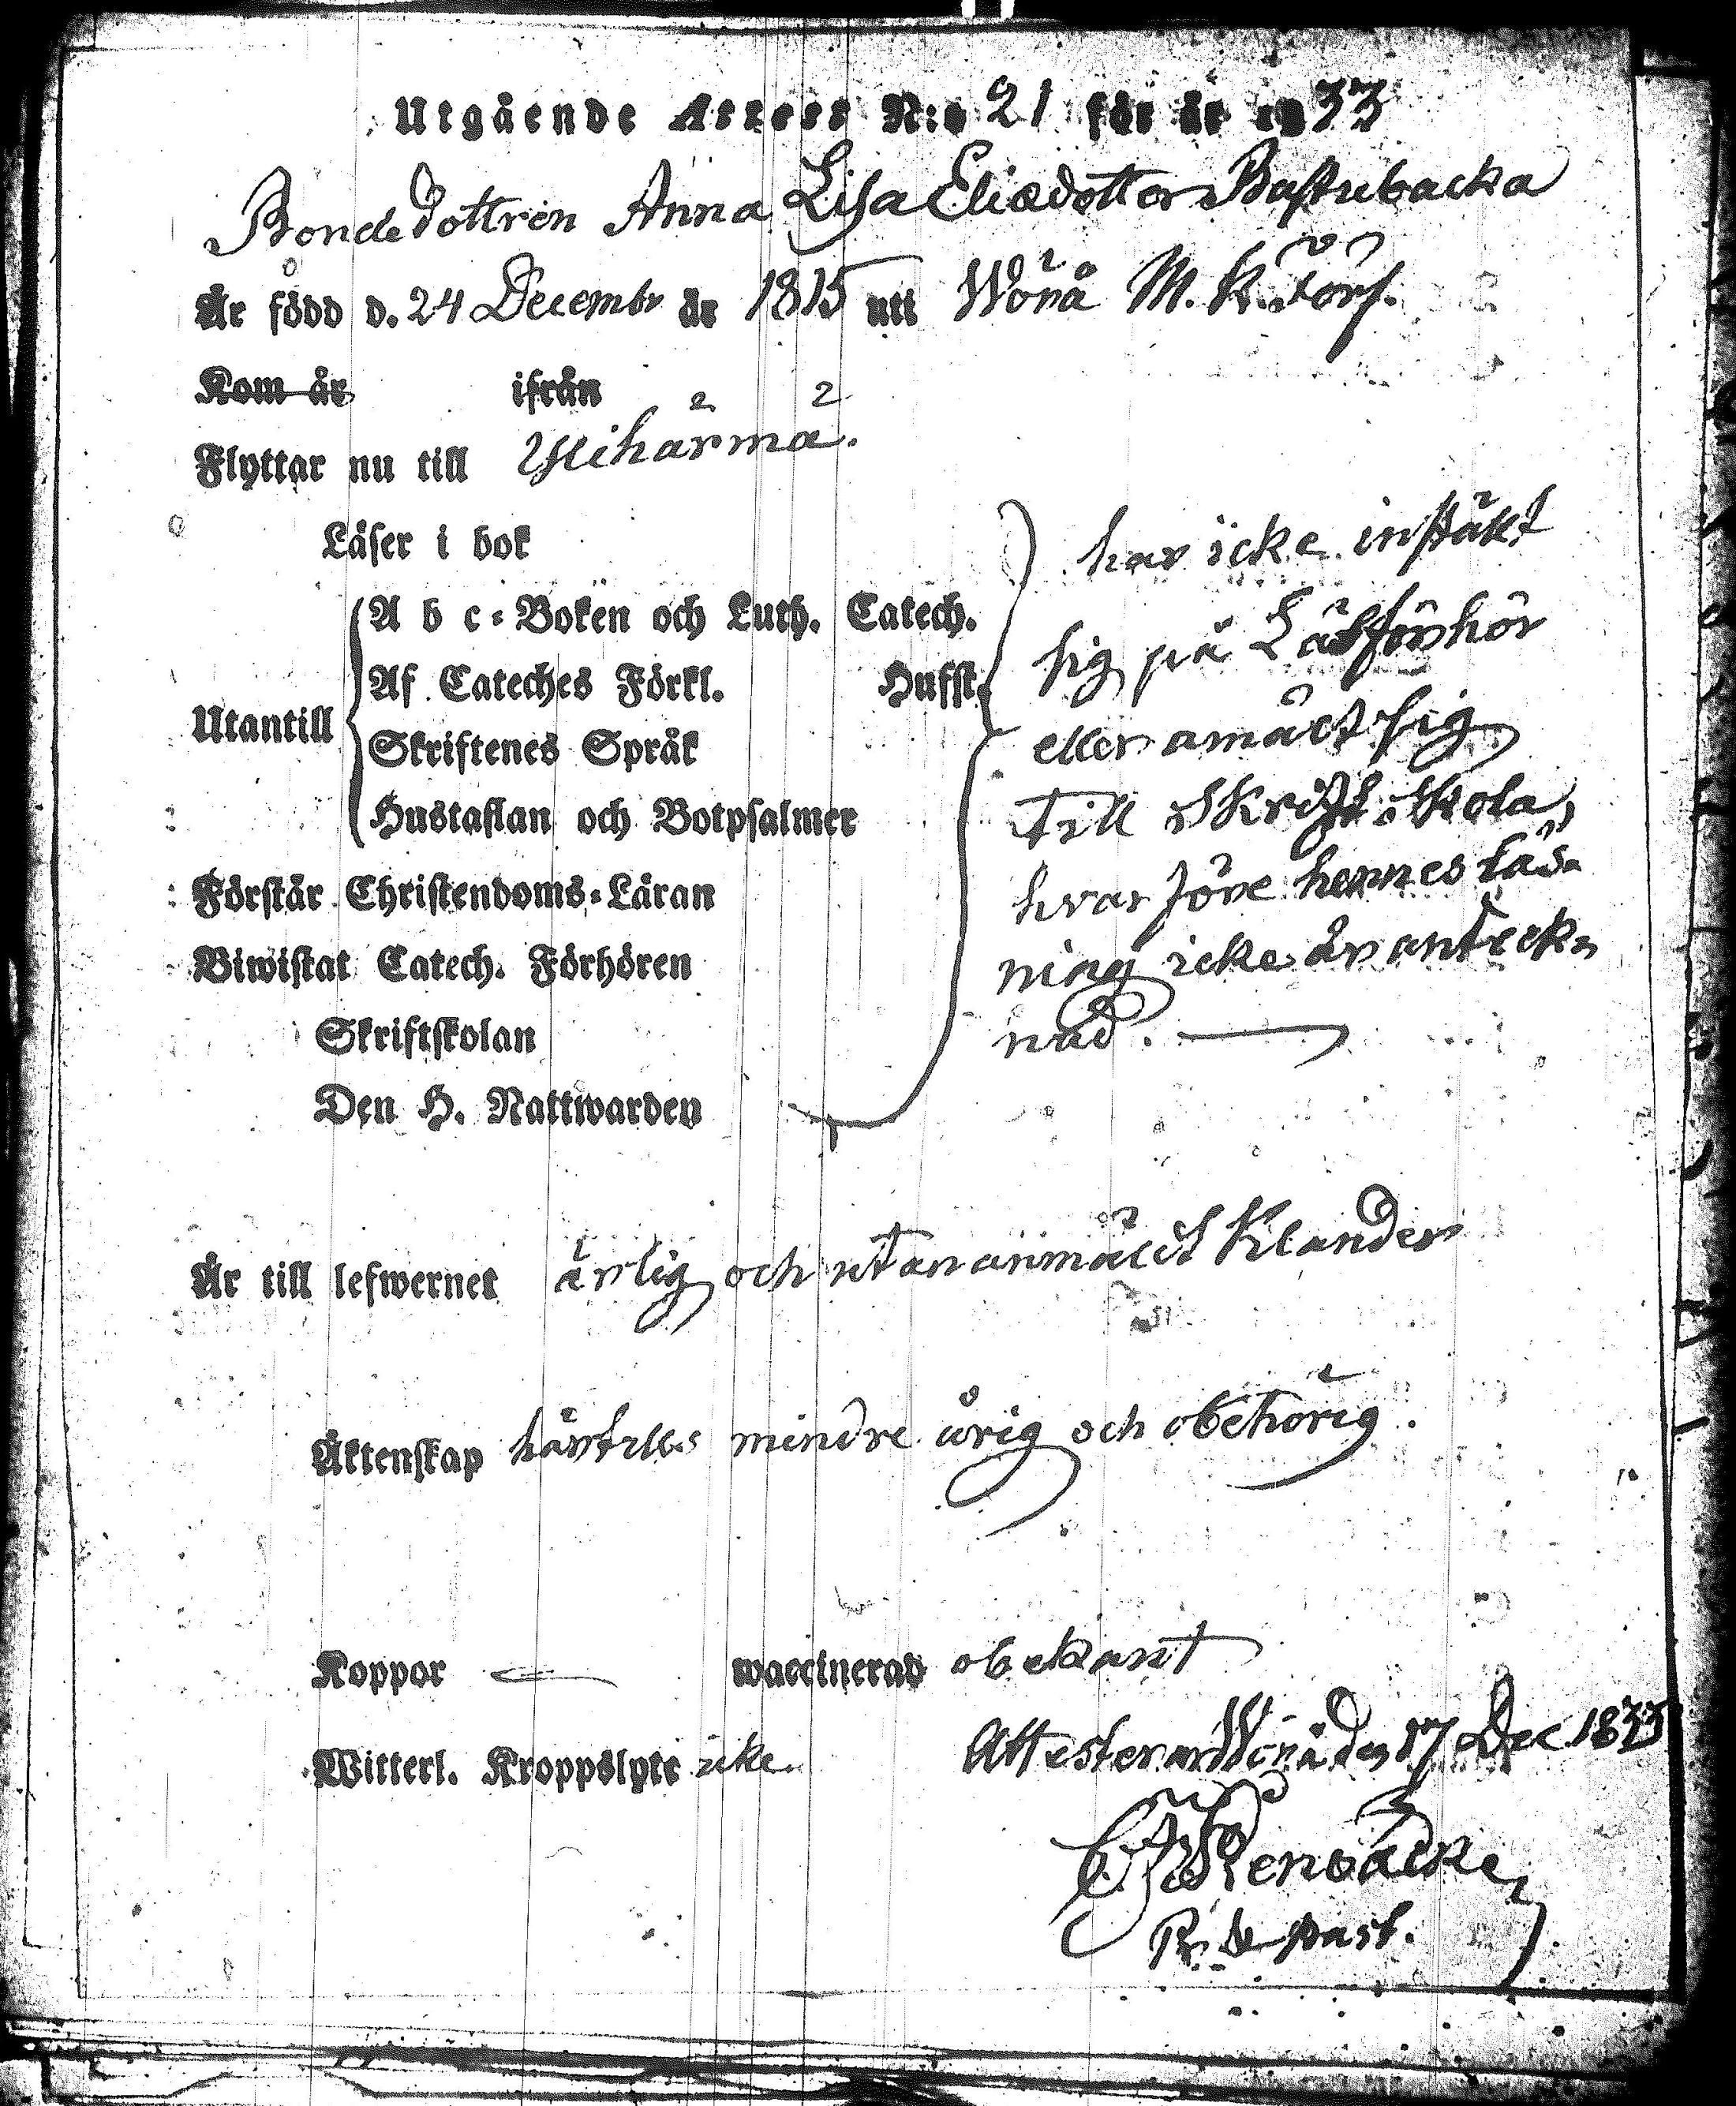 Utgående Attest N:o 21 för år 1833
Bonde dottren Anna Lisa Eliædotter Bastubacka
Är född d. 24 Decembr år 1815 uti Wörå M. K. förs.
Kom år ifrån
Flyttar nu till Ylihärmä.
Läser i bok
har icke instält
A b c-Boken och Luth. Catech.
sig på Läsförhör
Af Cateches Förkl. Husst.
Utantill
eller amält sig
Skriftenes Språk
till Skriftskola,
Hustaflan och Botpsalmer
hvarföre hennes läs-
Förstår Christendoms-Läran
ning icke är anteck-
Biwistat Catech. Förhören
nad.
Skriftskolan
Den H. Nattwarden
Är till lefwernet ärlig och utan anmält Klander
Äktenskap härtills mindre årig och obehörig.
Koppor — waccinerad obekant
Witterl. Kroppslyte icke. Attesterar Wörå den 17 Dec 1833
past.